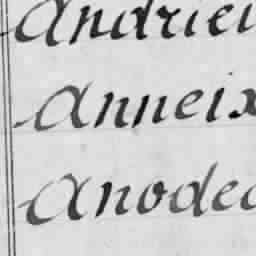 Andriei
Anneix
Anodea